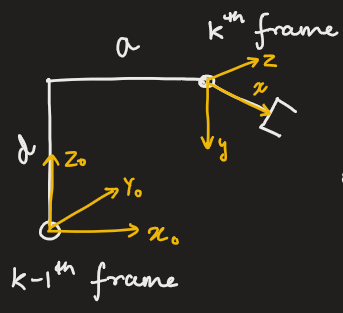 kth frame
a
z
x
y
d
Z0
Y0
x0
k-1th frame